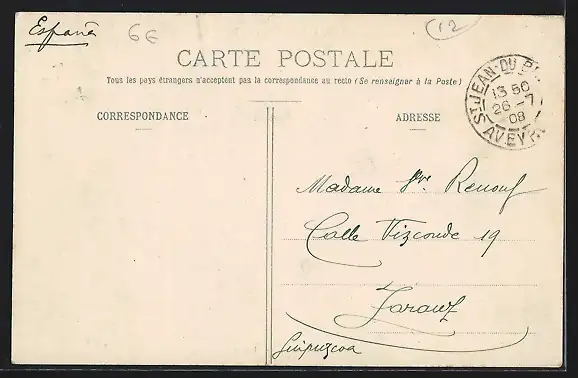 España
6€
12
CARTE POSTALE
Tous les pays étrangers n'acceptent pas la correspondance au recto (Se renseigner à la Poste)
CORRESPONDANCE
ADRESSE
ST JEAN-DU-BR
13 50
26 -7
08
AVEYR
Madame Vve Renouf
Calle Vizconde 19
Zarauz
Guipuzcoa